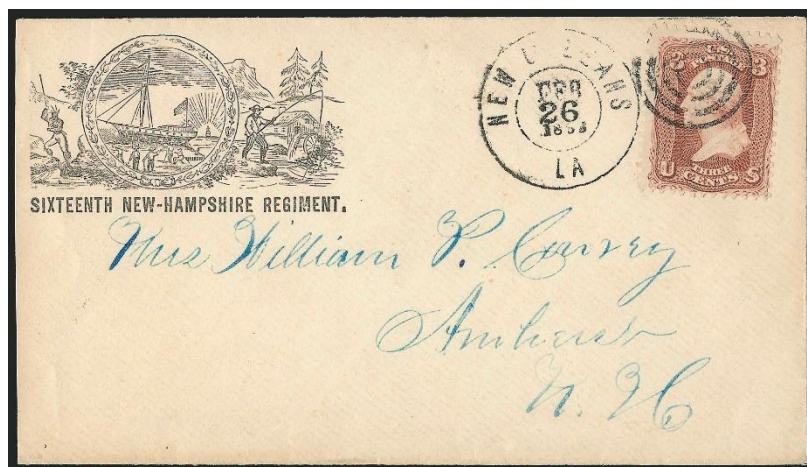 SIXTEENTH NEW-HAMPSHIRE REGIMENT.
NEW ORLEANS
FEB
26
1863
LA
3 U.S. POSTAGE 3
U THREE CENTS S
Mrs William P.
Amherst
N. H